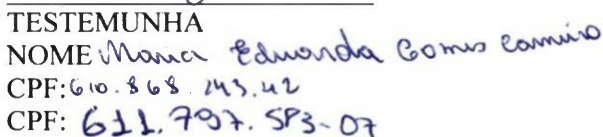 TESTEMUNHA
NOME Maria Eduarda Gomes
CPF: 610.868.143.42
CPF: 611.797.583-07